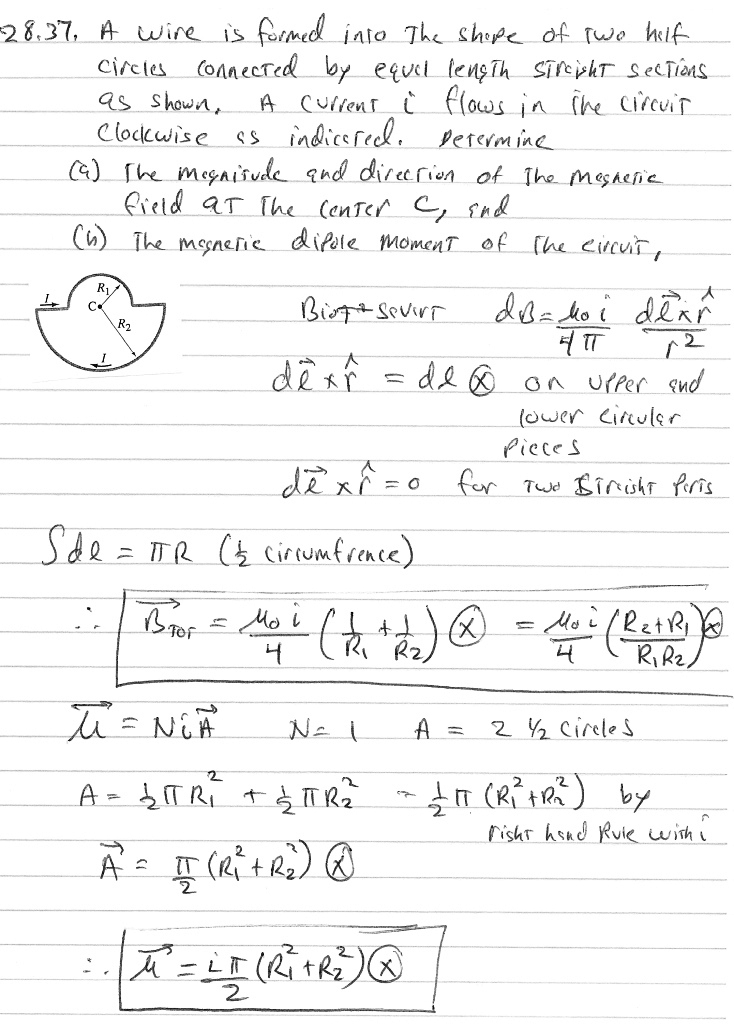 28.37. A wire is formed into the shape of two half
circles connected by equal length straight sections
as shown. A current i flows in the circuit
clockwise as indicated. Determine
(a) The magnitude and direction of the magnetic
field at the center C, and
(b) The magnetic dipole moment of the circuit,
I
R₁
C
R₂
I
Biot-Savart dB = μ₀ i / 4π dl⃗ × r̂ / r²
dl⃗ × r̂ = dl ⊗ on upper and
lower circular
pieces
dl⃗ × r̂ = 0 for two straight parts
∫dl = πR (½ circumfrence)
∴ B⃗TOT = μ₀ i / 4 (1/R₁ + 1/R₂) ⊗ = μ₀ i / 4 (R₂+R₁ / R₁R₂) ⊗
μ⃗ = NiA⃗ N=1 A = 2 ½ circles
A = ½πR₁² + ½πR₂² = ½π(R₁²+R₂²) by
right hand Rule with i
A⃗ = π/2 (R₁²+R₂²) ⊗
∴ μ⃗ = iπ/2 (R₁²+R₂²) ⊗